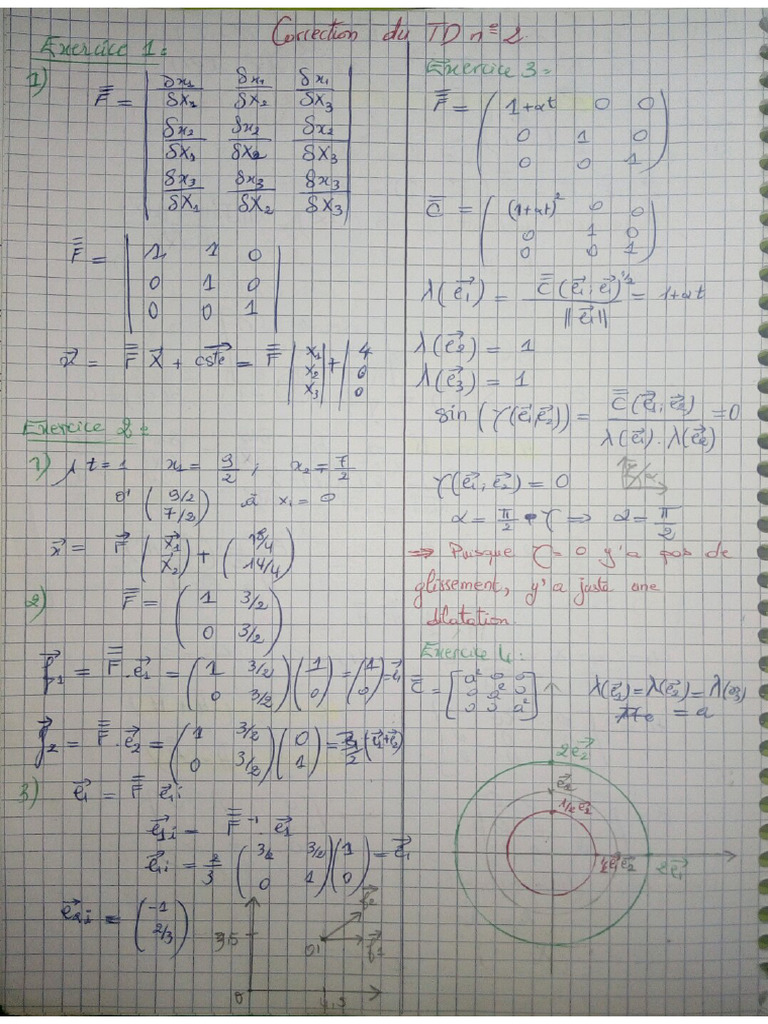 Correction du TD n° 2
Exercice 1 :
1)
F̿ = | δx₁/δX₁ δx₁/δX₂ δx₁/δX₃ |
| δx₂/δX₁ δx₂/δX₂ δx₂/δX₃ |
| δx₃/δX₁ δx₃/δX₂ δx₃/δX₃ |
F̿ = | 1 1 0 |
| 0 1 0 |
| 0 0 1 |
x⃗ = F̿ X⃗ + cste = F̿ | X₁ + | 4
| X₂ | 0
| X₃ | 0
Exercice 2 :
1) à t = 1 x₁ = 9/2 ; x₂ = 7/2
O' ( 9/2 ) à x₁ = 0
( 7/2 )
x⃗ = F̿ ( X₁ ) + ( 18/4 )
( X₂ ) ( 14/4 )
2)
F̿ = ( 1 3/2 )
( 0 3/2 )
f⃗₁ = F̿ . e⃗₁ = ( 1 3/2 ) ( 1 ) = ( 1 ) = e⃗₁
( 0 3/2 ) ( 0 ) ( 0 )
f⃗₂ = F̿ . e⃗₂ = ( 1 3/2 ) ( 0 ) = 3/2 (e⃗₁+e⃗₂)
( 0 3/2 ) ( 1 )
3) e⃗₁ = F̿ e⃗₁ᵢ
e⃗₁ᵢ = F̿⁻¹ . e⃗₁
e⃗₁ᵢ = 2/3 ( 3/2 3/2 ) ( 1 ) = e⃗₁
( 0 1 ) ( 0 )
e⃗₂ᵢ = ( -1 )
( 2/3 )
3,5
O'
f⃗₂
f⃗₁
0
4,5
Exercice 3 :
F̿ = ( 1+αt 0 0 )
( 0 1 0 )
( 0 0 1 )
C̿ = ( (1+αt)² 0 0 )
( 0 1 0 )
( 0 0 1 )
λ(e⃗₁) = C̿ (e⃗₁, e⃗₁)^1/2 / ||e⃗₁|| = 1+αt
λ(e⃗₂) = 1
λ(e⃗₃) = 1
sin (γ(e⃗₁,e⃗₂)) = C̿ (e⃗₁, e⃗₂) / λ(e⃗₁). λ(e⃗₂) = 0
γ(e⃗₁, e⃗₂) = 0
α = π/2 - γ ⟹ α = π/2
⟹ Puisque γ = 0 y'a pas de
glissement, y'a juste une
dilatation.
Exercice 4 :
C̿ = [ a² 0 0 ]
[ 0 a² 0 ]
[ 0 0 a² ]
λ(e⃗₁) = λ(e⃗₂) = λ(e⃗₃)
= a
2e⃗₂
e⃗₂
1/2 e⃗₂
1/2 e⃗₁
e⃗₂
2e⃗₁